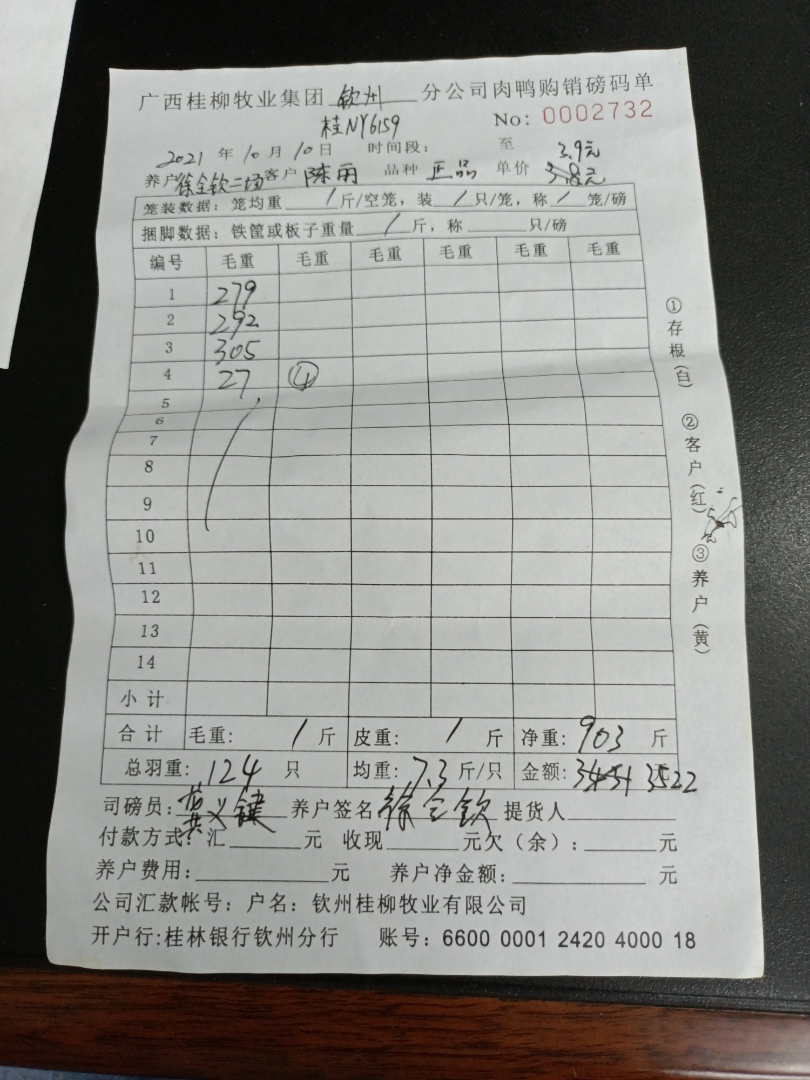 广西桂柳牧业集团 钦州 分公司肉鸭购销磅码单
桂NY6159 No: 0002732
2021 年 10 月 10 日 时间段: 至 3.9元
养户 徐全钦二场 客户 陈雨 品种 正品 单价
笼装数据: 笼均重 / 斤/空笼, 装 / 只/笼, 称 / 笼/磅
捆脚数据: 铁筐或板子重量 / 斤, 称 只/磅
编号 毛重 毛重 毛重 毛重 毛重 毛重
1 279
2 292
3 305
4 27 ④
5
6
7
8
9
10
11
12
13
14
小计
合计 毛重: / 斤 皮重: / 斤 净重: 903 斤
总羽重: 124 只 均重: 7.3 斤/只 金额: 3522
司磅员: 义键 养户签名 徐全钦 提货人
付款方式: 汇 元 收现 元欠(余): 元
养户费用: 元 养户净金额: 元
公司汇款帐号: 户名: 钦州桂柳牧业有限公司
开户行:桂林银行钦州分行 账号: 6600 0001 2420 4000 18
①存根(白) ②客户(红) ③养户(黄)